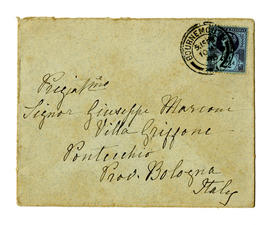 BOURNEMOUTH
Pregiatmo
Signor Giuseppe Marconi
Villa Griffone
Pontecchio
Prov. Bologna
Italy